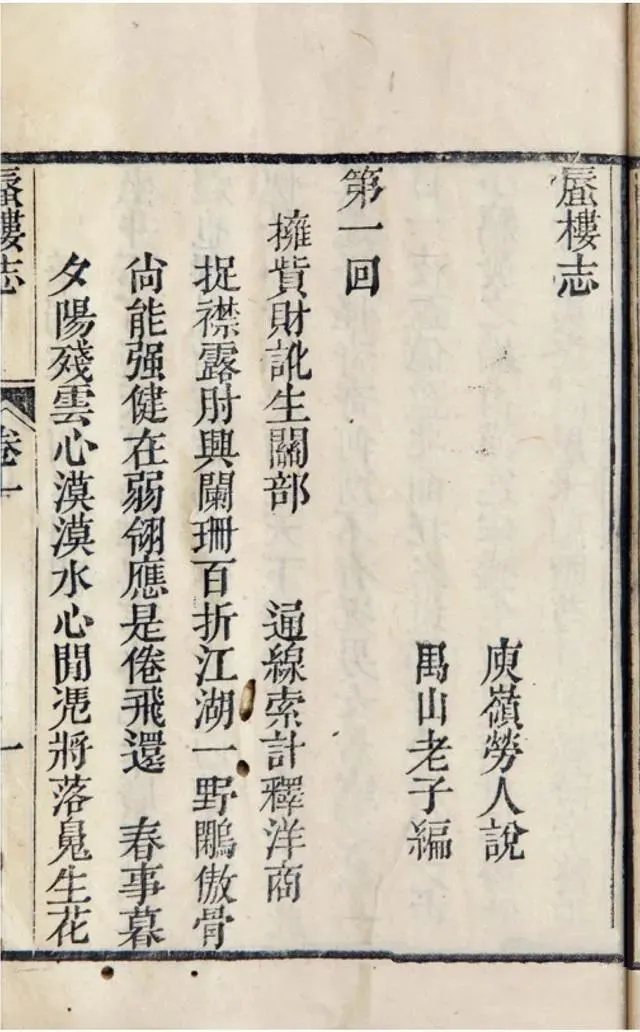 蜃樓志
庾嶺勞人說
禺山老子編
第一回
擁貲財訛生關部　通線索計釋洋商
捉襟露肘興闌珊百折江湖一野鷴傲骨
尙能强健在弱翎應是倦飛還　春事暮
夕陽殘雲心漠漠水心閒凭將落生花
蜃樓志　卷一　一